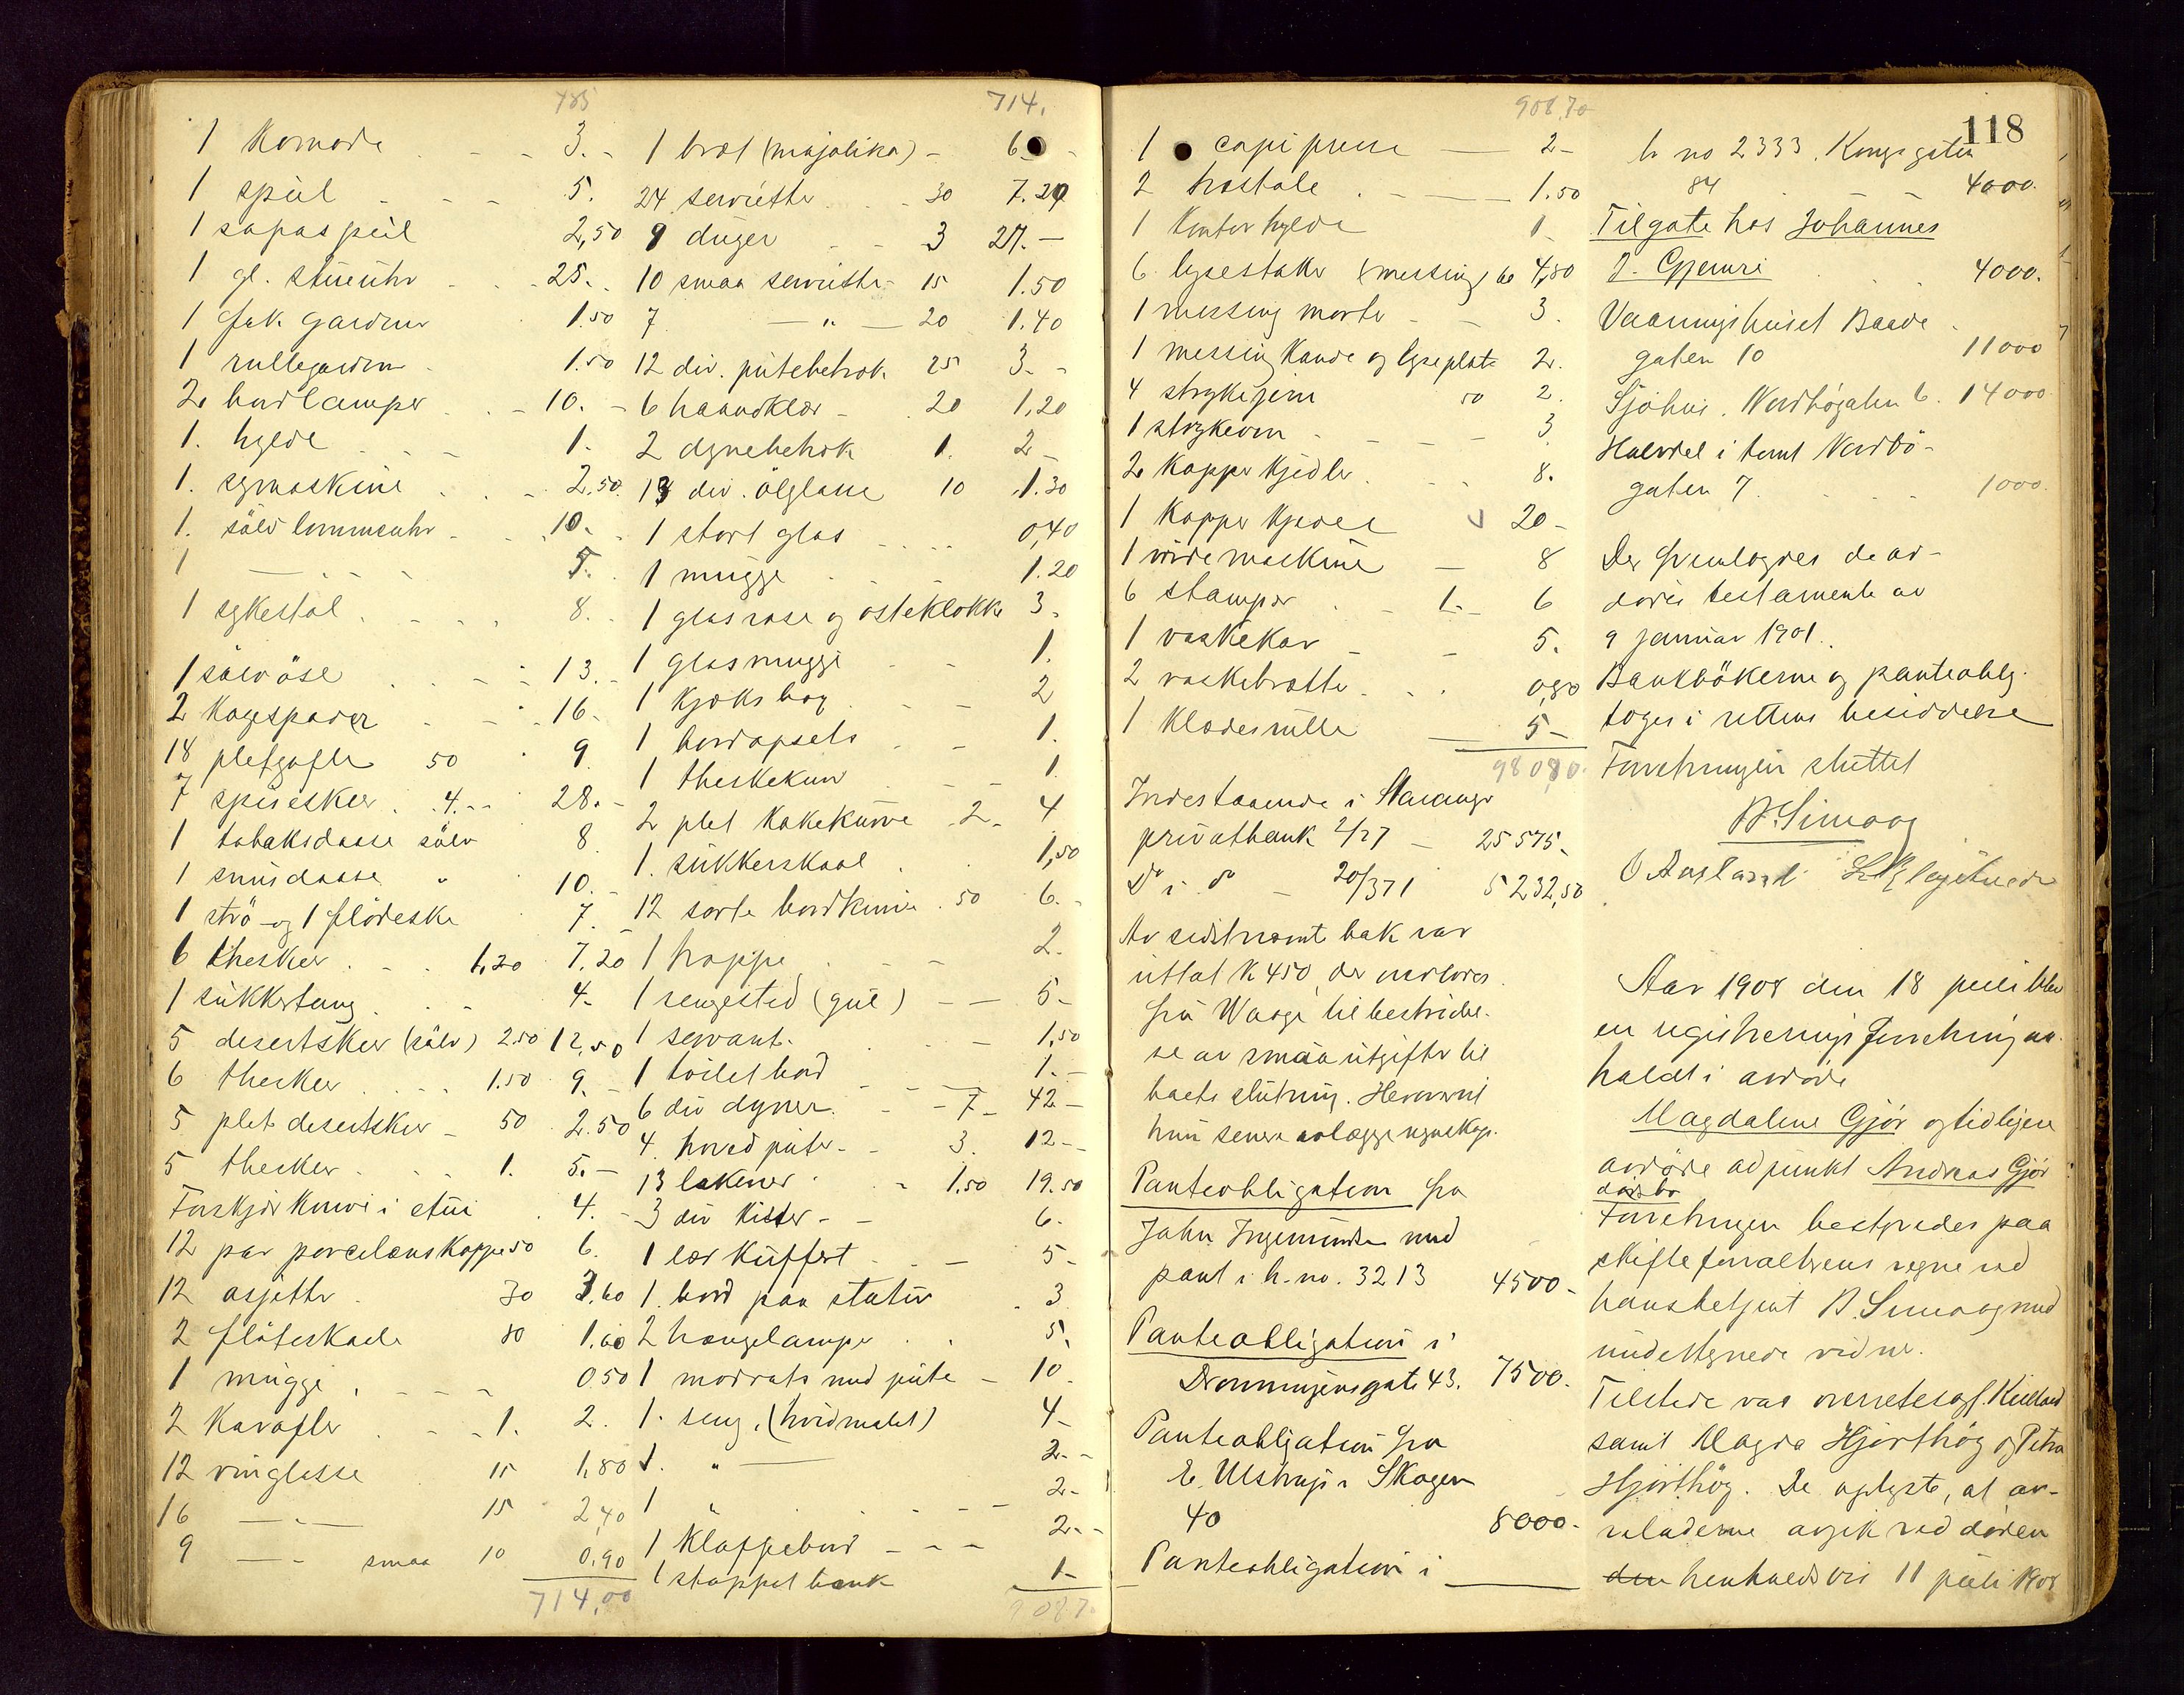 785
1 Komode - - 3.-
1 speil - - - 5.
1 sofaspeil 2,50
1 gl. stueuhr - - 25.-
1 fak. Gardiner 1.50
1 rullegardin - 1.50
2 bordlamper - - 10.-
1. hylde - - - 1.-
1. symaskine - - 2,50.
1. sölv lommeuhr - - 10.-
1 — " - 5.-
1 sykestol - - - 8.-
1 sölvöse - - - 13.-
2 Kagespader - - 16.-
18 pletgafler 50 9.
7 spiseskeer 4.-- 28.-
1 tobaksdaase sölv 8.
1 snusdaase " 10.-
1 strö- og 1 flödeske 7.-
6 theskeer - - 1,20 7,20
1 sukkertang - - 4.-
5 desertskeer (sölv) 2.50 12,50
6 theskeer 1.50 9.-
5 plet desertskeer - 50 2.50
5 theskeer - - 1. 5.-
Forskjærkniver i etui 4.-
12 par porcelænskopper 50 6.
12 asjetter 30 3.60
2 flöteskaale 80 1.60
1 mugge - - - 0.50
2 Karafler - - 1. 2.
12 vinglasse 15 1,80
16 — " — 15 2,40
9 — " - smaa 10 0,90
714,00
714.
1 bræt (majolika) - 6.-
24 servietter - - 30 7.20
9 duger - - 3 27.—
10 smaa servietter - 15 1.50
7 — " — 20 1.40
12 div. putebetræk 25 3.-
6 haandklær - 20 1,20
2 dynebetræk 1. 2-
13 div. ölglasse 10 1.30
1 stort glas - - - - 0,40
1 mugge - - - 1.20
1 glasvase og osteklokke 3.
1 glasmugge - - 1.
1 Kjæksbox - - 2
1 bordopsats - - 1.
1 theekekurv - - 1.
2 plet Kakekurve 2- 4
1. sukkerskaal 1,50
12 sorte bordknive 50 6.-
1 trappe - - - 2.
1 sengested (gul) — — 5-
1 servant - - 1,50
1 toiletbord - - 1.—
6 div dyner - - 7- 42-
4 hovedputer - - 3. 12-
13 lakener - - 1,50 19.50
3 div kister - - 6.
1 lær kuffert - - 5-
1. bord paa stativ - 3
2 hængelamper - - 5.
1 madrats med pute - 10.
1. seng. (hvidmalet) 4-
1. " — 2.-
1 " - - - 2-
1 Klappebord - - - 2.-
1 stoppet bænk 1-
9087.
118
908,70
1 copipresse — 2-
2 træstole - — 1.50
1 Kontorhylde 1-
6 lysestaker (messing) 80 4,80
1 messing morter - - 3.
1 messing Kande og lyseplate 2.
4 strykejern 50 2.
1 strykeovn - - - - 3
2 Kopper Kjedler - - - 8.
1 Kopper Kjedel 20-
1 vridemaskine — 8
6 stamper - - 1.- 6
1 vaskekar - - 5.
2 vaskebrætte - - - 0,80
1 Klædesrulle — 5-
980,80.
Indestaaende i Stavanger
privatbank 2/27 - 25575-
Do i do - 20/371 5232,50
Av sidstnævnte bok var
uttat K 450, der overlores
fru Waage til bestridel-
se av smaa utgifter til
boets slutning. Herover vil
hun senere avlægge regnskap.
Panteobligation fra
John Ingemundsen med
pant i h.-no. 3213 4500-
Panteobligation i
Dronningensgate 43. 7500-
Panteobligation fra
E. Ulstrup i Skagen
40 8000-
Panteobligation i
h no 2333. Kongsgaten
84 - - 4000.
Tilgode hos Johannes
J. Gjemre 4000.
Vaaningshuset Baade
gaten 10 11000
Sjöhus. Nordbögaten 6. 14000
Halvdel i tomt Nordbö-
gaten 7. - - - 1000.
Der fremlagdes de av-
dödes testamente av
9 januar 1901.
Bankbökerne og panteoblg.
toges i rettens besiddelse
Forretningen sluttet
B. Simoog
O Ausland
Aar 1908 den 18 juli blev
en registreringsforretning av-
holdt i avdöde
Magdalene Gjör og tidligere
avdöde adjunkt Andreas Gjör
dödsbo
Forretningen bestyredes paa
skifteforvalterens vegne ved
hans betjent B. Simoog med
undertegnede vidner.
Tilstede var overretssagf. Kielland
samt Magda Hjorthög og Petra
Hjorthög. De oplyste, at av-
veladerne avgik ved döden
den henholdsvis 11 juli 1908